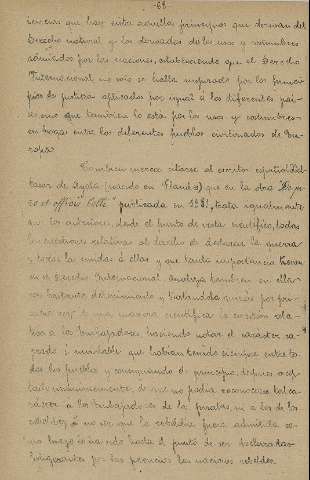 68
que hay entre aquellos principios que derivan del
Derecho natural y los derivados de los usos y costumbres
admitidos por las naciones, estableciendo que el Derecho
Internacional no solo se halla inspirado por los princi-
pios de justicia aplicados por igual a los diferentes paí-
ses sino que también lo está por los usos y costumbres
en boga entre los diferentes pueblos civilizados de Eu-
ropa.
También merece citarse al escritor español Bal-
tasar de Ayala (nacido en Flandes) que en la obra "De ju-
re et officiis belli" publicada en 1581, trata igualmente
que los anteriores, desde el punto de vista científico, todas
las cuestiones relativas al derecho de declarar la guerra
y todas las unidas a ellas y que tanta importancia tienen
en el Derecho Internacional. Analiza también en ella
con bastante detenimiento y tratándola quizás por pri-
mera vez de una manera científica la cuestión rela-
tiva a los Embajadores, haciendo notar el carácter sa-
grado é inviolable que habían tenido siempre entre to-
dos los pueblos y consignando el principio, después acep-
tado unánimemente, de que no podía reconocerse tal ca-
rácter a los Embajadores de los piratas, ni a los de los
rebeldes, á no ser que la rebeldía fuera admitida co-
mo luego lo ha sido hasta el punto de ser declaradas
beligerantes por las potencias las naciones rebeldes.